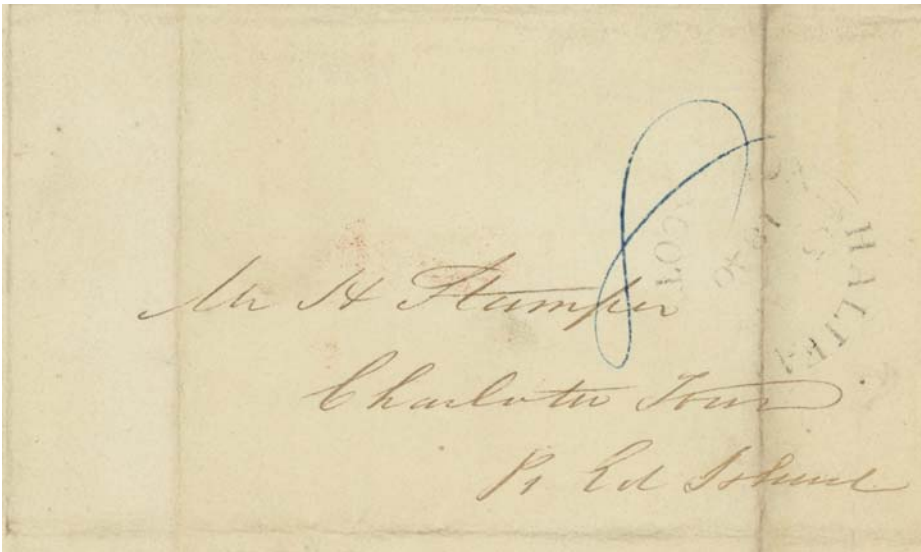 8
Mr H Stamper
Charlotte Town
Pr Ed Island
HALIFA